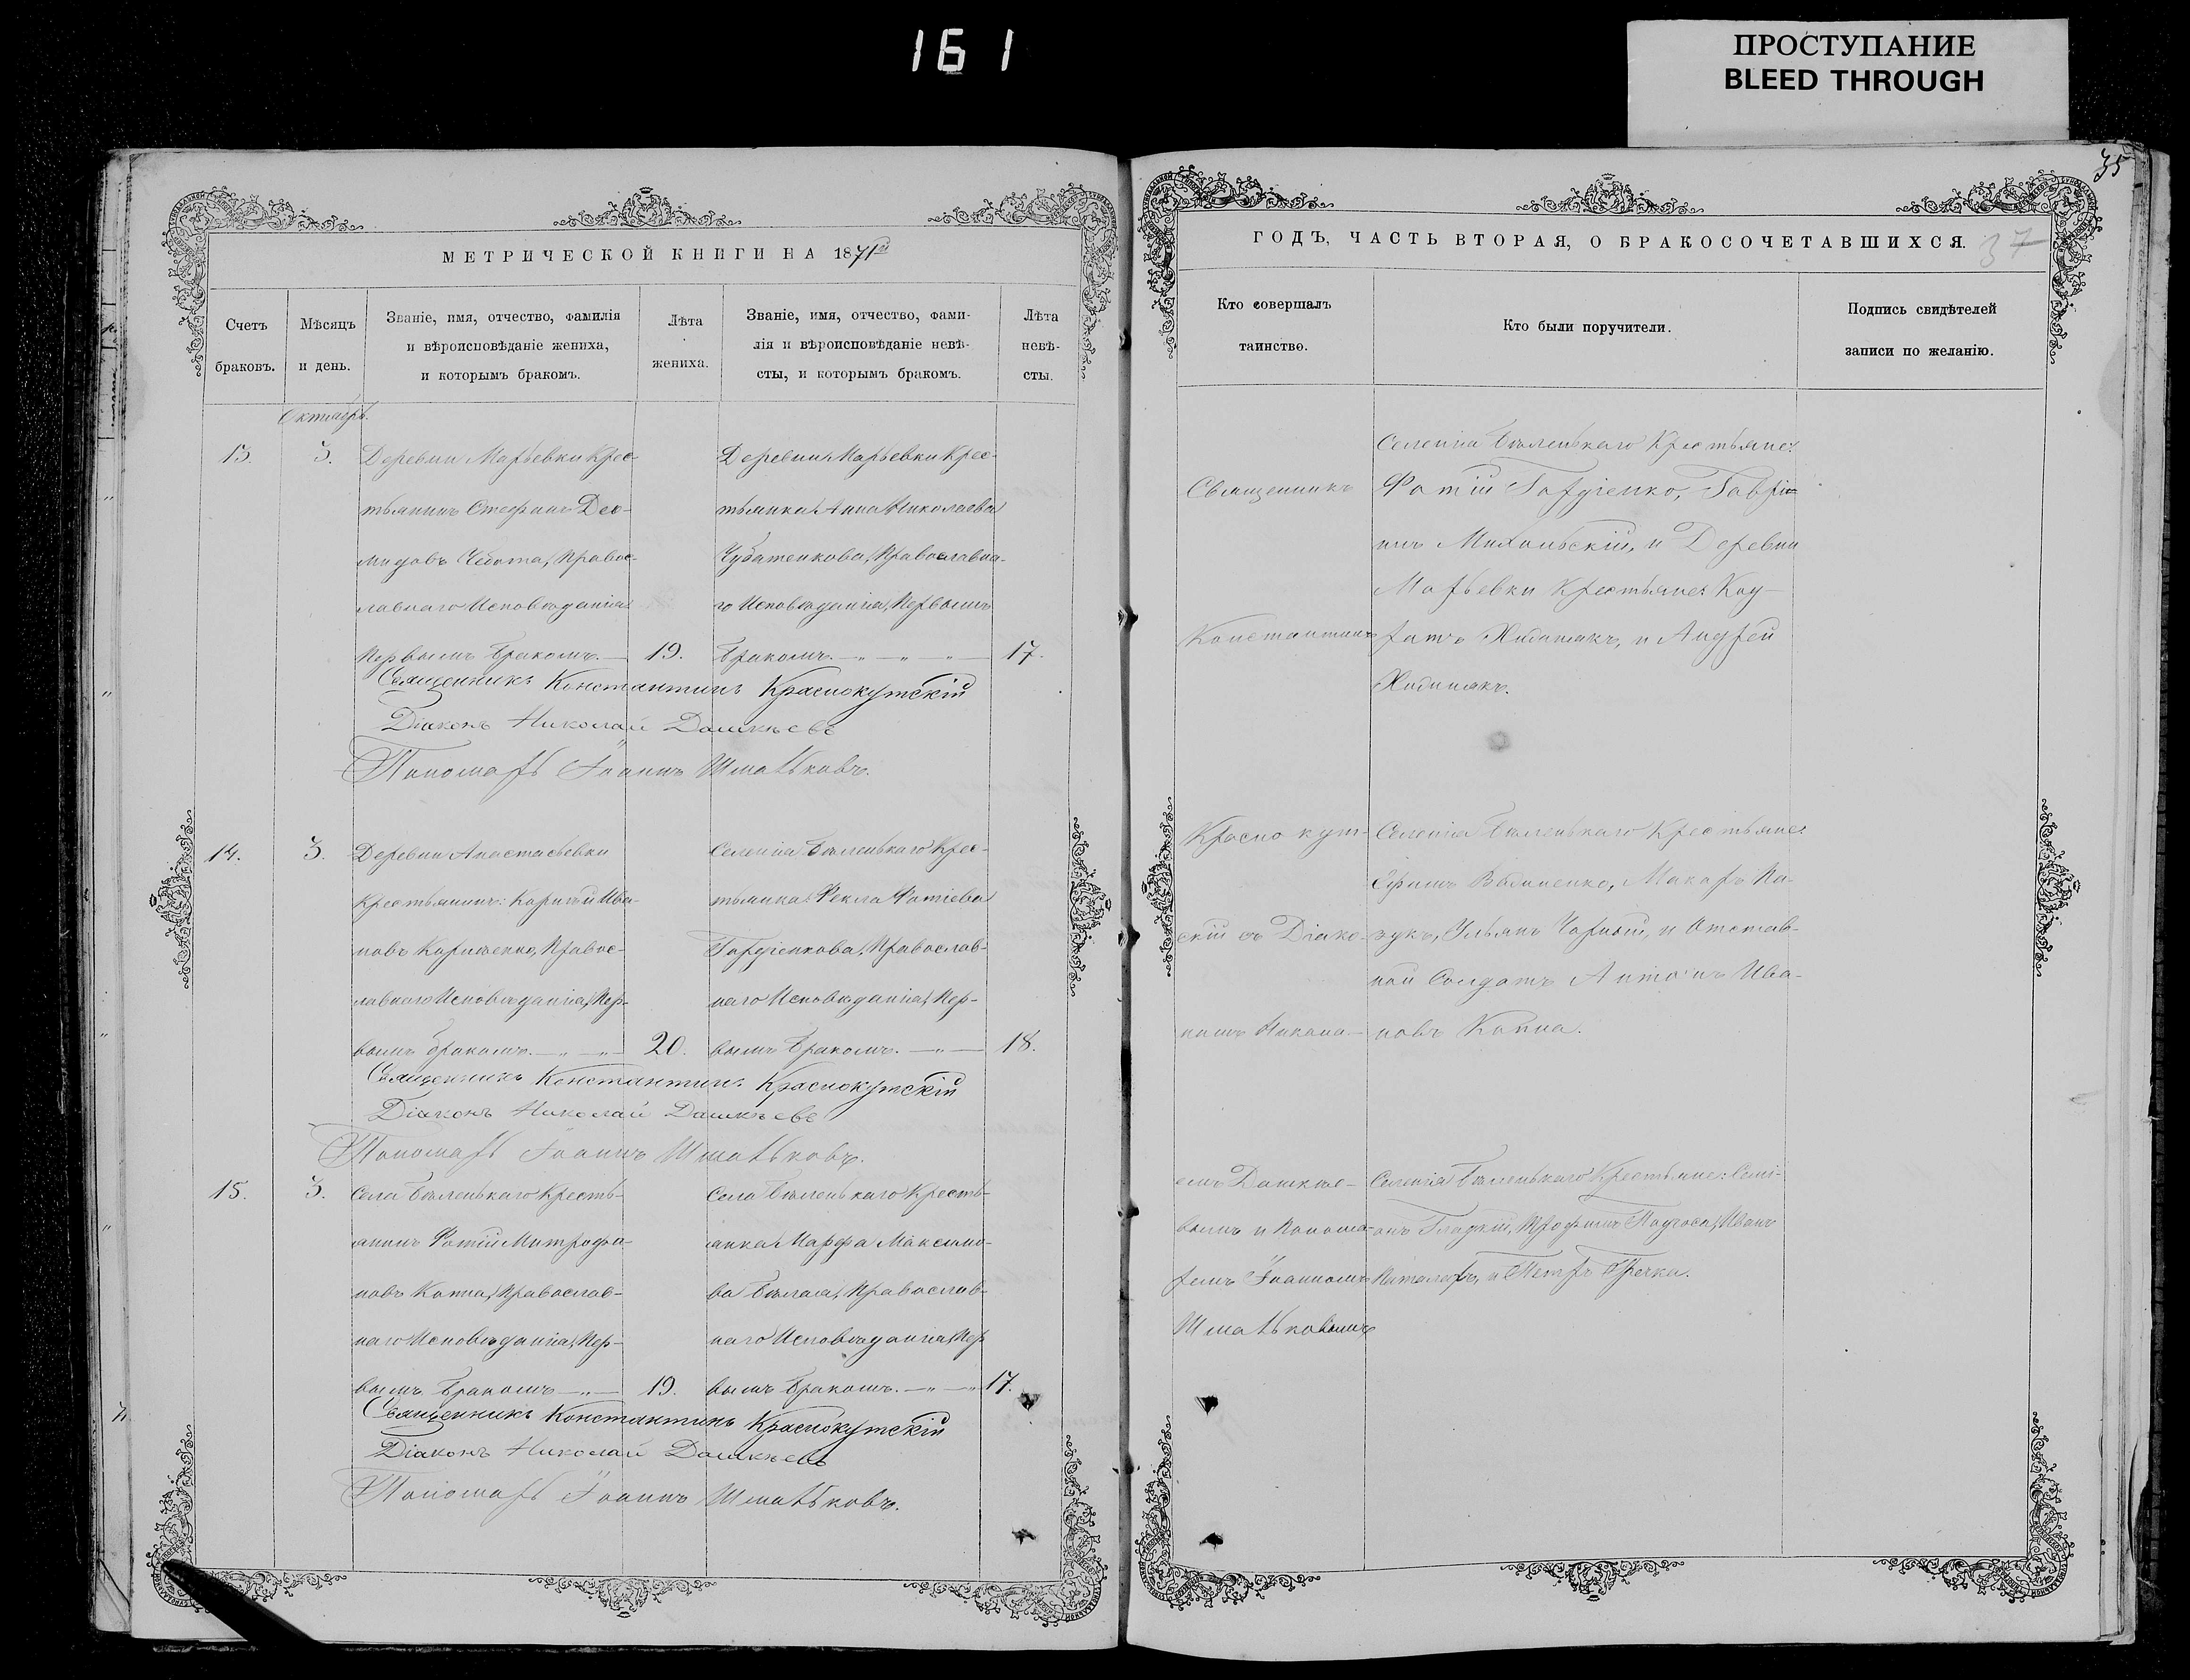 161
ПРОСТУПАНИЕ
BLEED THROUGH
МЕТРИЧЕСКОЙ КНИГИ НА 1871й
Счетъ браковъ.
Мѣсяцъ и день.
Званіе, имя, отчество, фамилія
и вѣроисповѣданіе жениха,
и которымъ бракомъ.
Лѣта жениха.
Званіе, имя, отчество, фами-
лія и вѣроисповѣданіе невѣ-
сты, и которымъ бракомъ.
Лѣта невѣ- сты.
Октябрь.
13. 3.
Деревни Марьевки Крес-
тьянинъ Стефанъ Део-
мидовъ Чебота, Правос-
лавнаго Исповѣданія
Первымъ бракомъ. 19.
Деревни Марьевки Крес-
тьянка Анна Николаева
Чубатенкова, Православна-
го Исповѣданія, Первымъ
бракомъ. 17.
Священникъ Константинъ Краснокутскій
Діаконъ Николай Дашкѣевъ
Пономарь Іоаннъ Шматьковъ.
14. 3.
Деревни Анастасьевки
Крестьянинъ: Карпъ Ива-
новъ Православ-
лавнаго Исповѣданія, Пер-
вымъ бракомъ. 20.
Селенія Бѣленькаго Крес-
тьянка Фекла Фотіева
Гордіенкова, Православ-
наго Исповѣданія, Пер-
вымъ бракомъ. 18.
Священникъ Константинъ Краснокутскій
Діаконъ Николай Дашкѣевъ
Пономарь Іоаннъ Шматьковъ.
15. 3.
Села Бѣленькаго Кресть-
янинъ Фотій Митрофа-
новъ Коппа, Православ-
наго Исповѣданія, Пер-
вымъ бракомъ 19.
Села Бѣленькаго Кресть-
янка Марфа Максимо-
ва Бѣлая, Православ-
наго Исповѣданія, Пер
вымъ бракомъ. 17.
Священникъ Константинъ Краснокутскій
Діаконъ Николай Дашкѣевъ
Пономарь Іоаннъ Шматьковъ.
35
ГОДЪ, ЧАСТЬ ВТОРАЯ, О БРАКОСОЧЕТАВШИХСЯ.
37
Кто совершалъ
таинство.
Кто были поручители.
Подпись свидѣтелей
записи по желанію.
Священникъ
Константинъ
Краснокут-
скій съ Діако-
номъ Никола-
емъ Дашкѣе-
вымъ и Понома-
ремъ Іоанномъ
Шматьковымъ
Селенія Бѣленькаго Крестьяне:
Фотій Гордіенко, Гаврі-
илъ и Деревни
Марьевки Крестьяне: Код-
ратъ и Андрей
Селенія Бѣленькаго Крестьяне:
Ефимъ Макаръ Па-
зукъ, Ульянъ Чорный, и Отстав-
ной Солдатъ Антонъ Ива-
новъ Коппа.
Селенія Бѣленькаго Крестьяне: Семі-
онъ Гладкій, Трофимъ Иванъ
и Петръ Гречка.